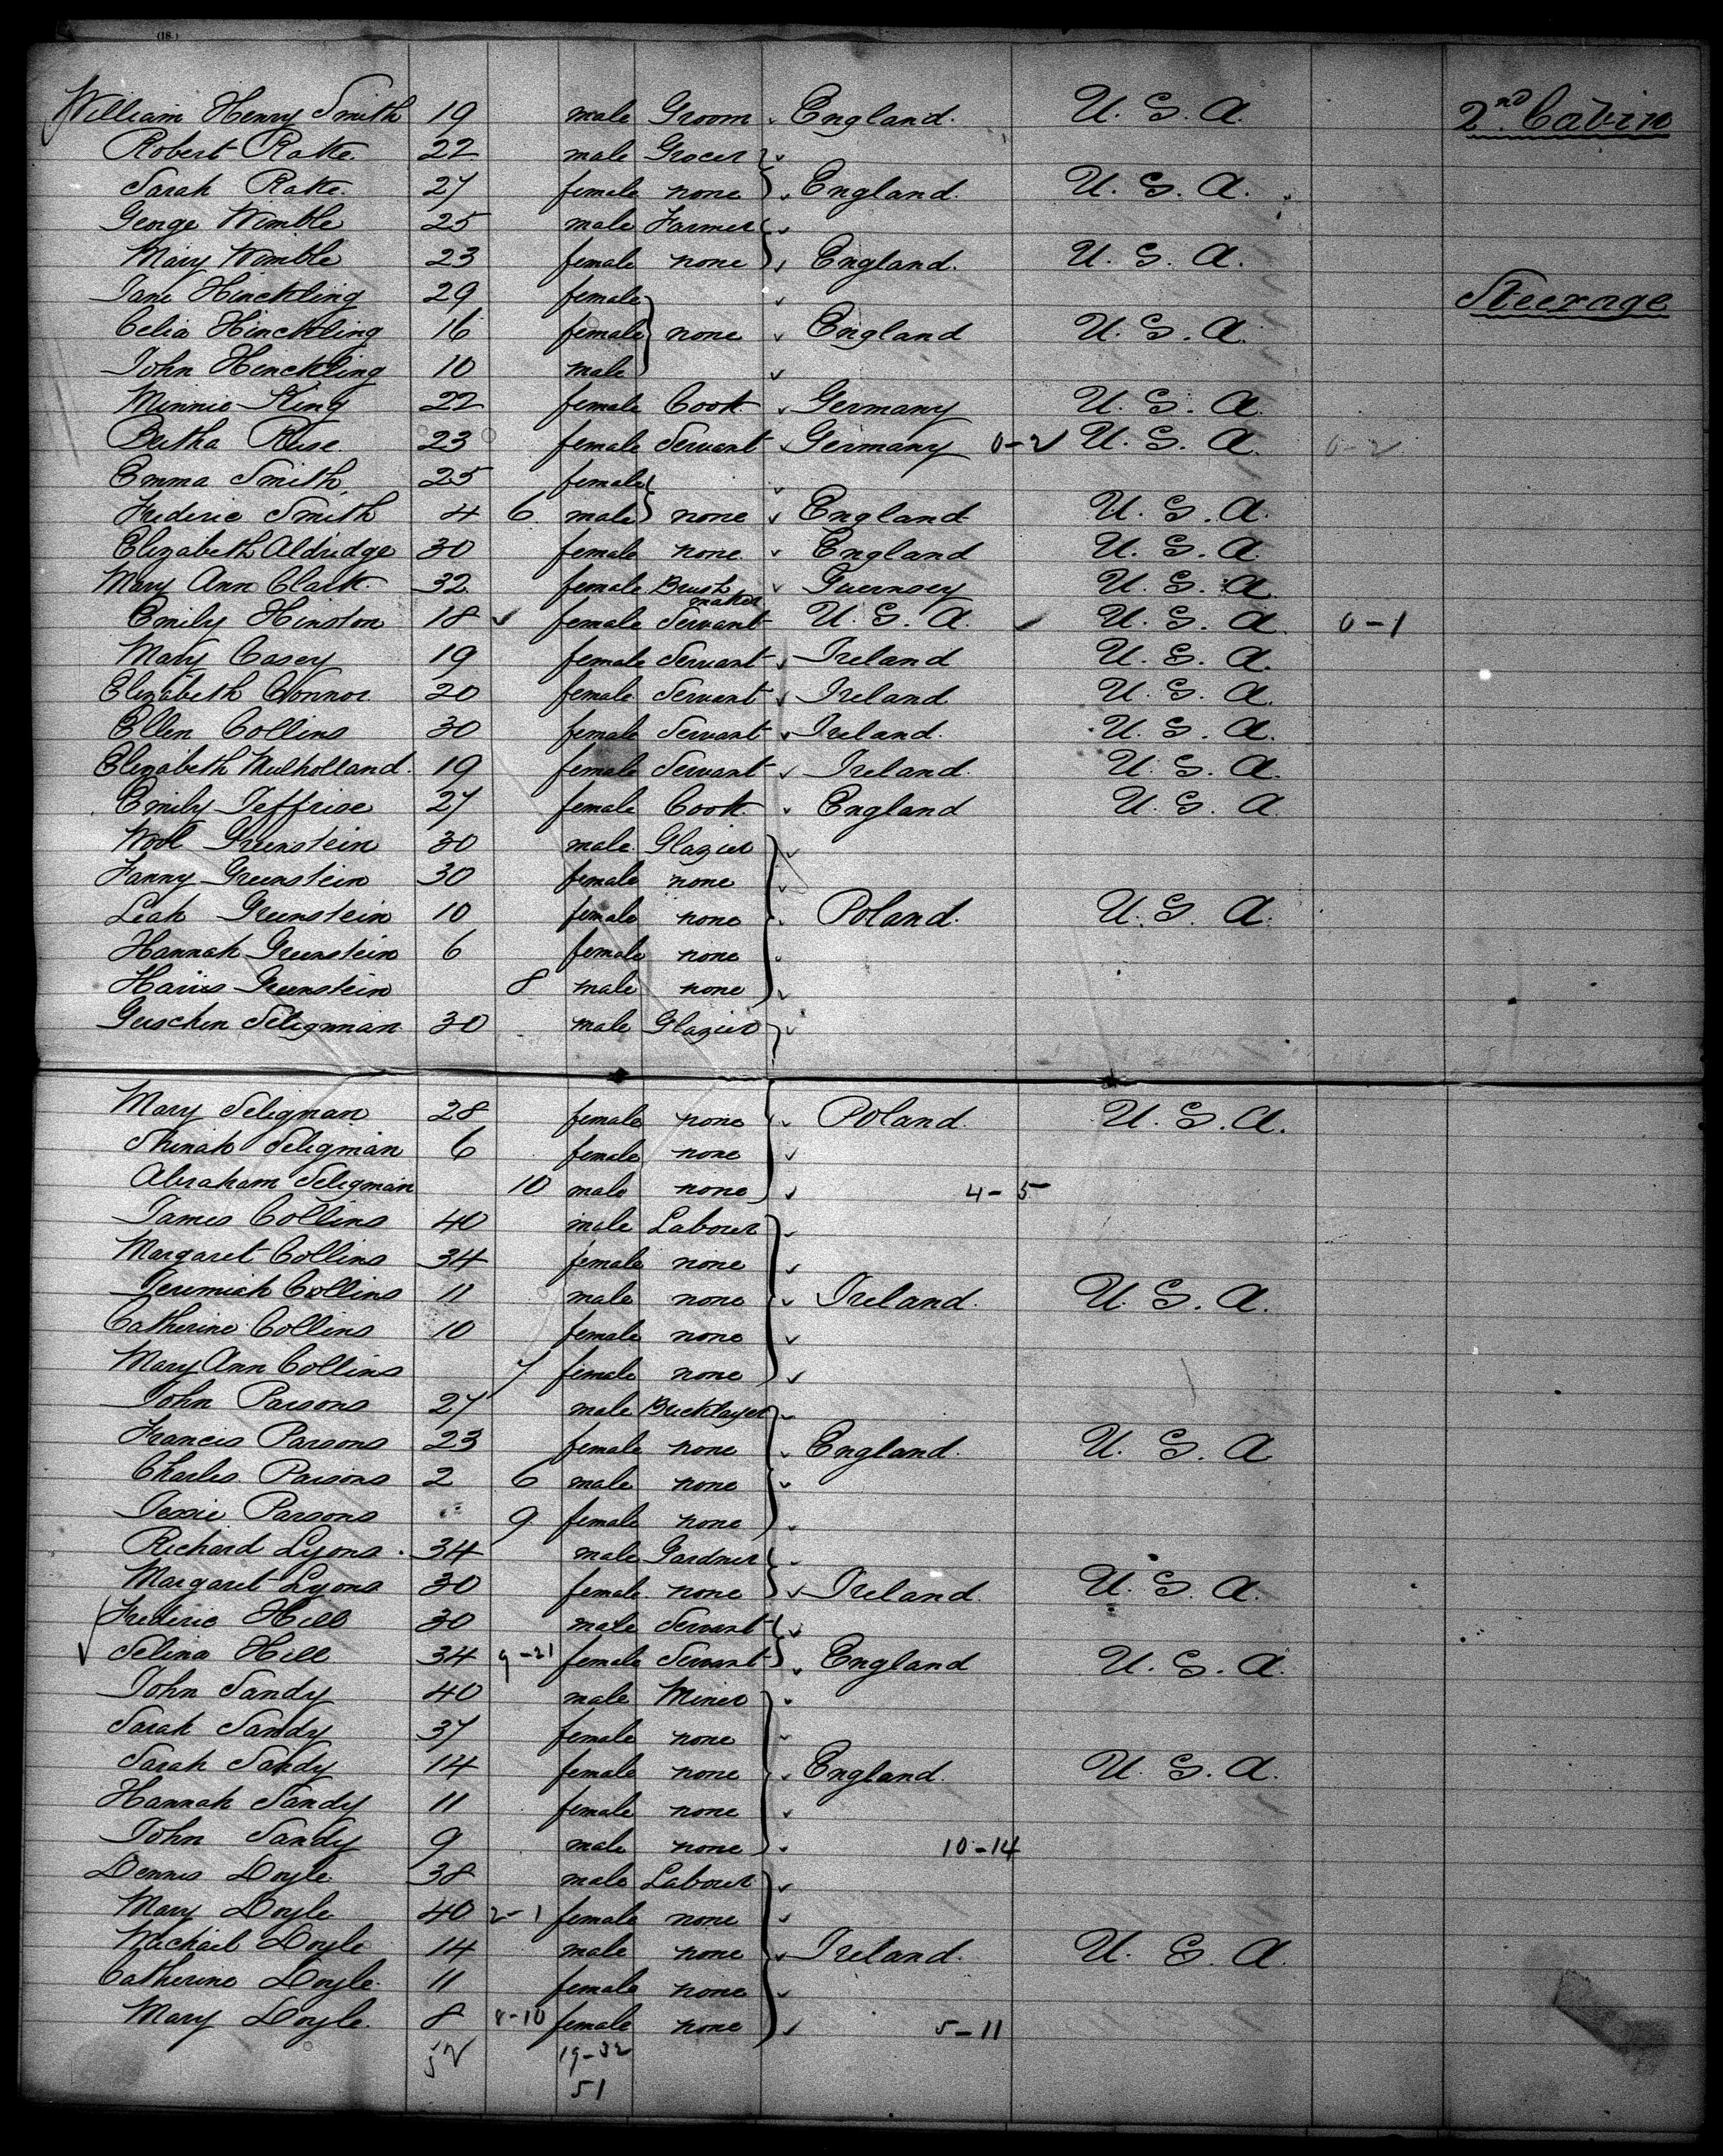 (18)
William Henry Smith 19 male Groom England. U. S. A. 2nd Cabin
Robert Rake 22 male Grocer
Sarah Rake. 27 female none England. U. S. A.
George Wimble 25 male Farmer
Mary Wimble 23 female none England. U. S. A.
Jane Hinckling 29 female Steerage
Celia Hinckling 16 female none England U. S. A.
John Hinckling 10 male
Minnie King 22 female Cook Germany U. S. A.
Bertha Ruse 23 female Servant Germany 0-2 U. S. A. 0-2
Emma Smith 25 female
Frederic Smith 4 6 male none England U. S. A.
Elizabeth Aldridge 30 female none England U. S. A.
Mary Ann Clark 32 female Brush maker Guernsey U. S. A.
Emily Hinston 18 female Servant U. S. A. U. S. A. 0-1
Mary Casey 19 female Servant Ireland U. S. A.
Elizabeth Connor 20 female Servant Ireland U. S. A.
Ellen Collins 30 female Servant Ireland. U. S. A.
Elizabeth Mulholland. 19 female Servant Ireland. U. S. A.
Emily Jeffrise 27 female Cook England U. S. A.
Greenstein 30 male Glazier
Fanny Greenstein 30 female none
Leah Greenstein 10 female none Poland. U. S. A.
Hannah Greenstein 6 female none
Harris Greenstein 8 male none
Guschen Seligman 30 male Glazier
Mary Seligman 28 female none Poland. U. S. A.
Seligman 6 female none
Abraham Seligman 10 male none 4-5
James Collins 40 male Labourer
Margaret Collins 34 female none
Jeremiah Collins 11 male none Ireland. U. S. A.
Catherine Collins 10 female none
Mary Ann Collins 7 female none
John Parsons 27 male Bricklayer
Francis Parsons 23 female none England. U. S. A
Charles Parsons 2 6 male none
Jessie Parsons 9 female none
Richard Lyons. 34 male Gardner
Margaret Lyons 30 female none Ireland. U. S. A.
Frederic Hill 30 male Servant
Selina Hill 34 9-21 female Servant England U. S. A.
John Sandy 40 male Miner
Sarah Sandy 37 female none
Sarah Sandy 14 female none England. U. S. A.
Hannah Sandy 11 female none
John Sandy 9 male none 10-14
Dennis Doyle 38 male Labourer
Mary Doyle 40 2-1 female none
Michael Doyle 14 male none Ireland. U. S. A.
Catherine Doyle. 11 female none
Mary Doyle. 8 8-10 female none 5-11
52 19-32
51